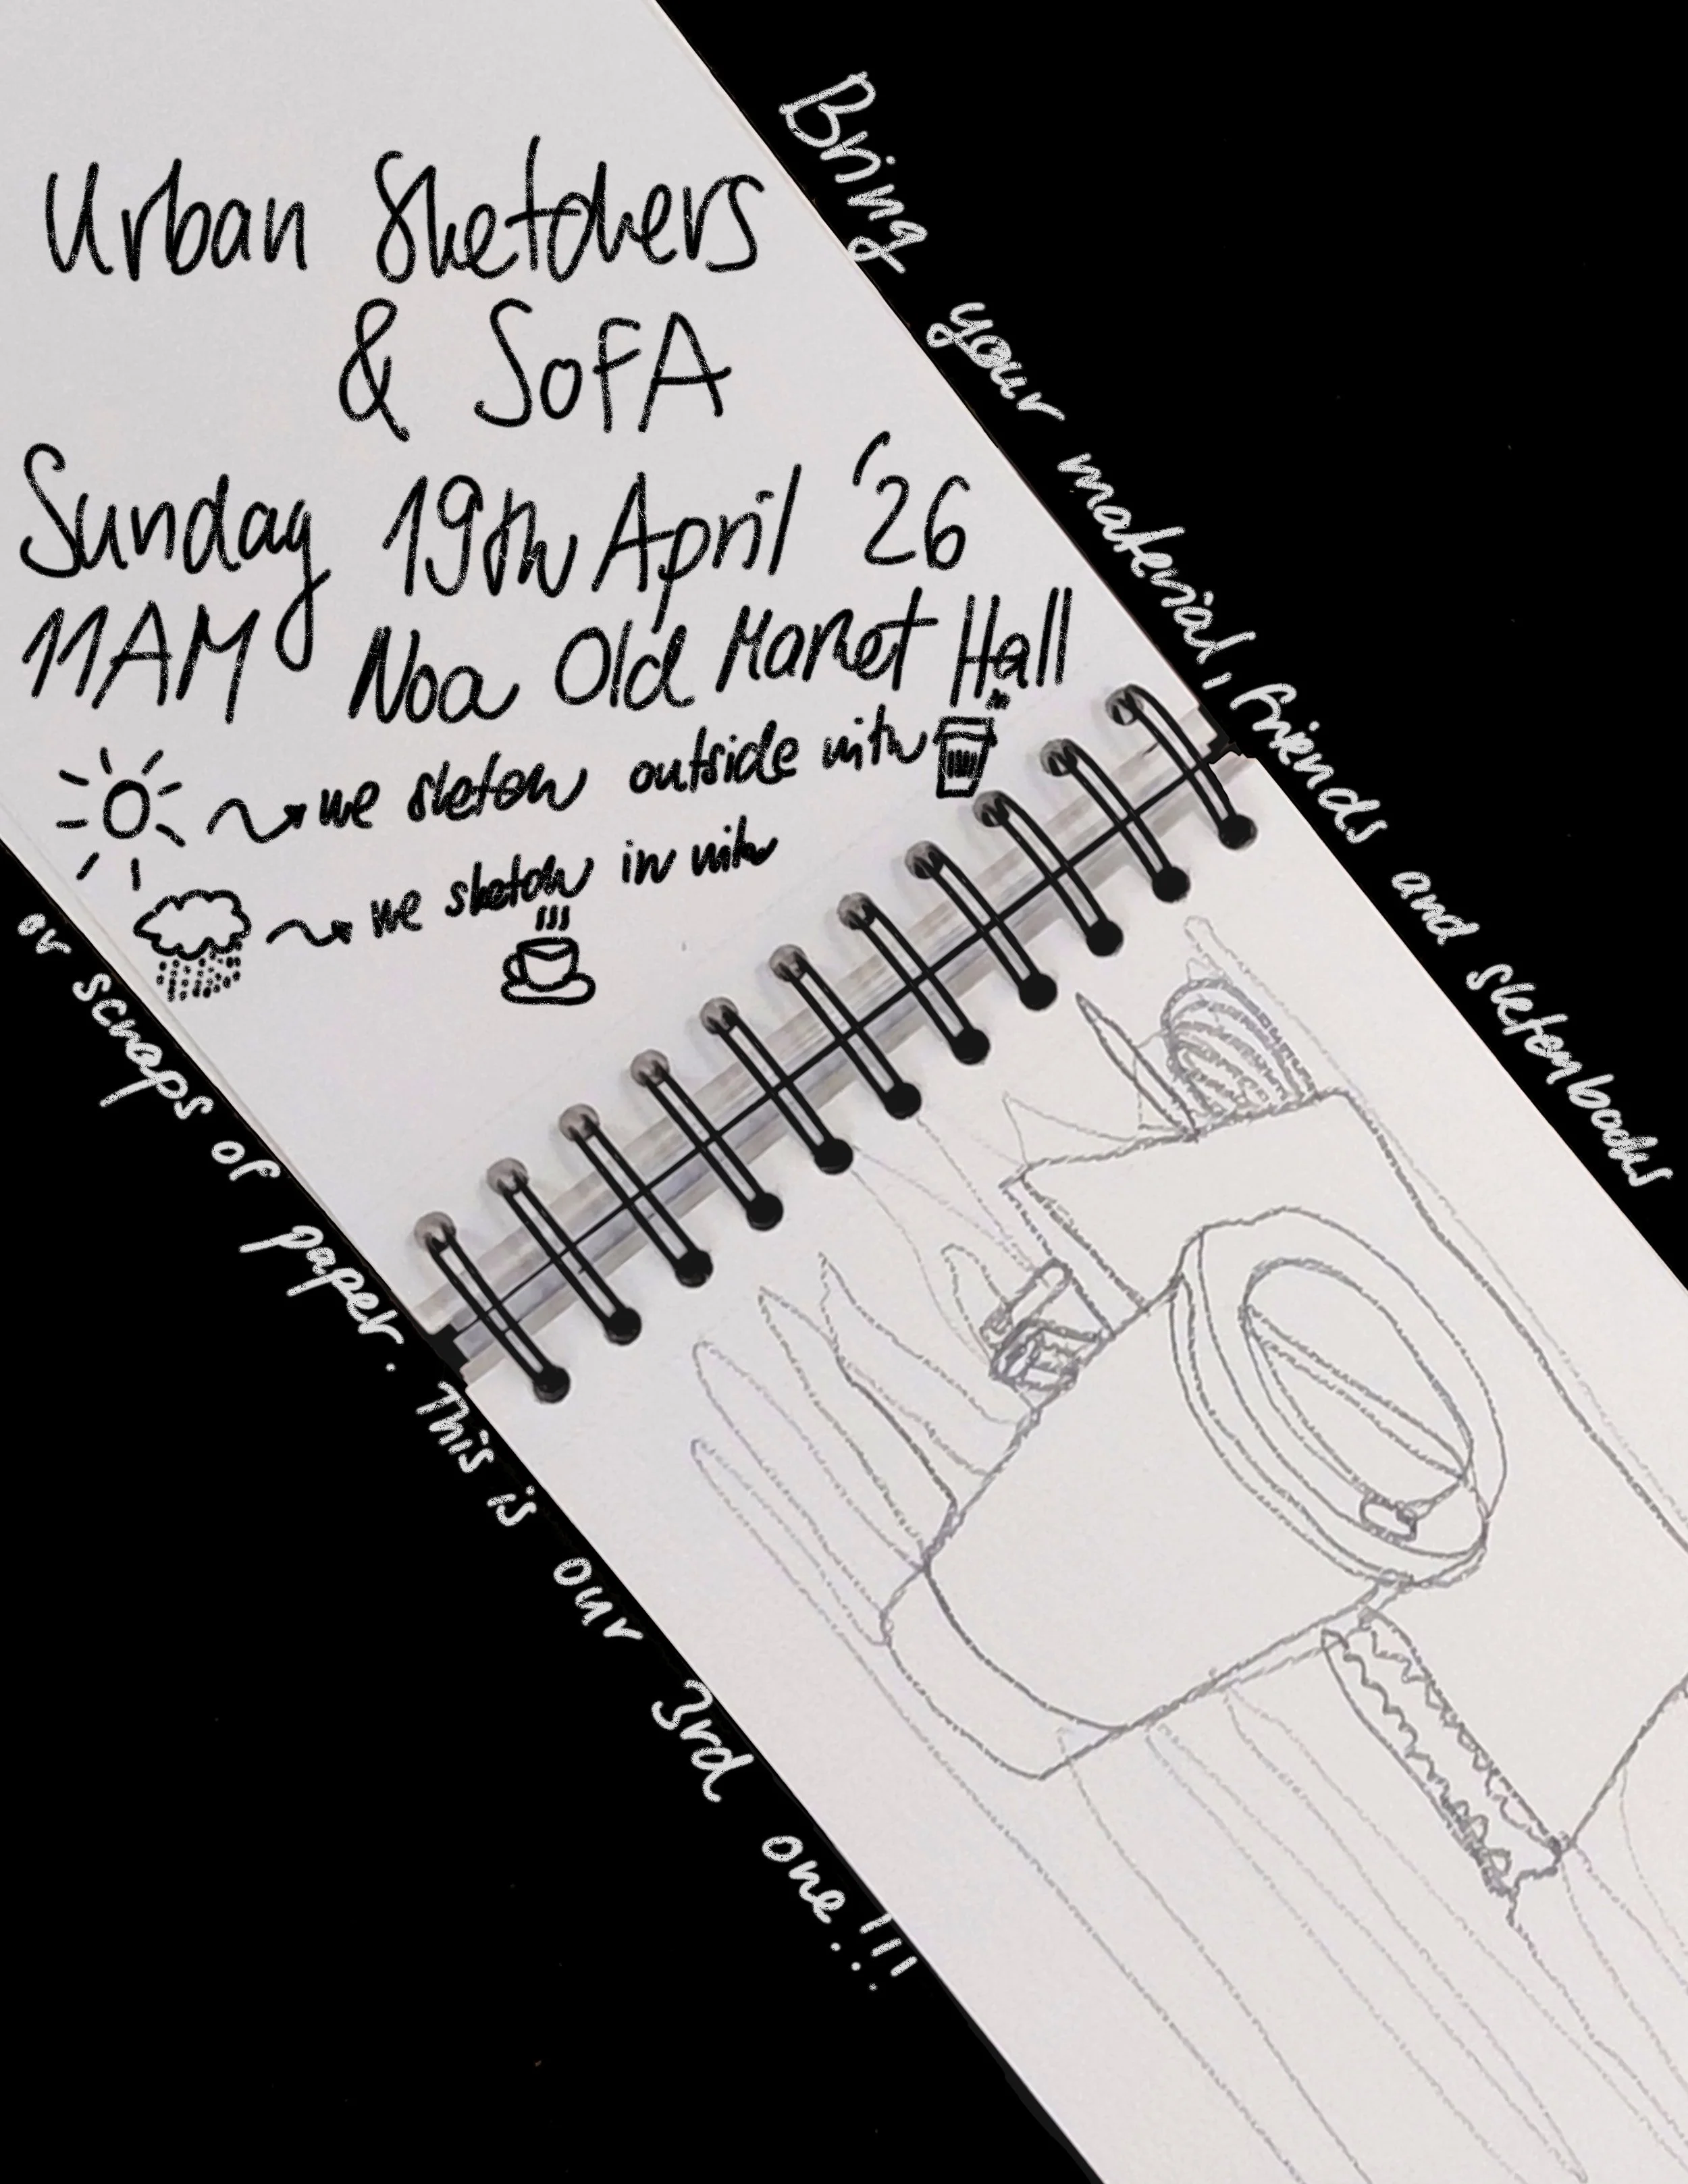 Urban Sketchers
& SofA
Sunday 19th April '26
11AM Noa Old Market Hall
we sketch outside with
we sketch in with
Bring your material, friends and sketchbooks
or scraps of paper. This is our 3rd one!!!